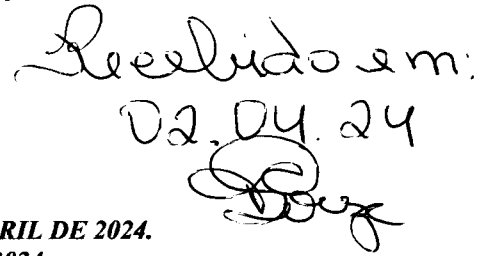 Recebido em:
02.04.24
Souza
RIL DE 2024.